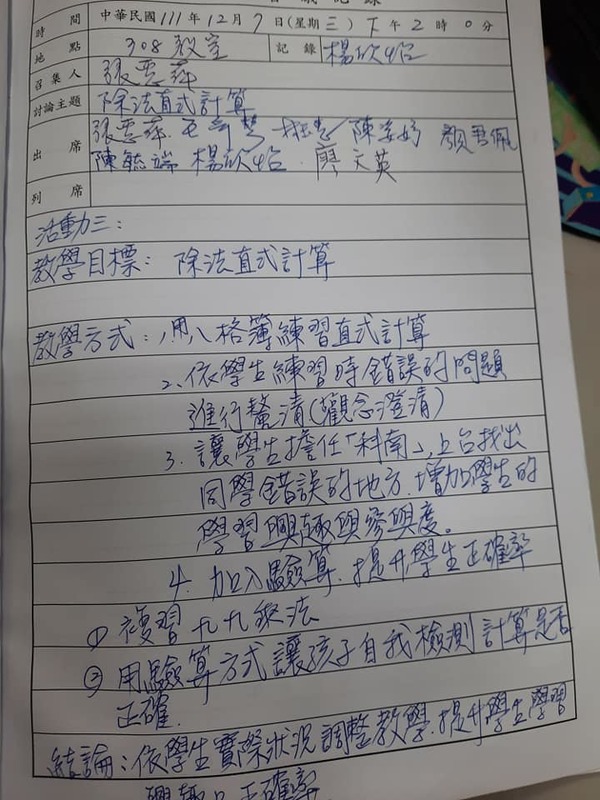 會議記錄
時間 中華民國 111 年 12 月 7 日(星期 三) 下 午 2 時 0 分
地點 308教室 記錄 楊欣怡
召集人 張雲萍
討論主題 除法直式計算
出席 張雲萍 陳姿妤 顏君佩
陳毓端 楊欣怡 廖文英
列席
活動三：
教學目標：除法直式計算
教學方式：1.用八格簿練習直式計算
2、依學生練習時錯誤的問題
進行釐清(觀念澄清)
3. 讓學生擔任「科南」，上台找出
同學錯誤的地方．增加學生的
學習興趣與參與度。
4. 加入驗算．提升學生正確率
① 複習九九乘法
② 用驗算方式讓孩子自我檢測計算是否
正確．
結論：依學生實際狀況調整教學．提升學生學習
興趣與正確率